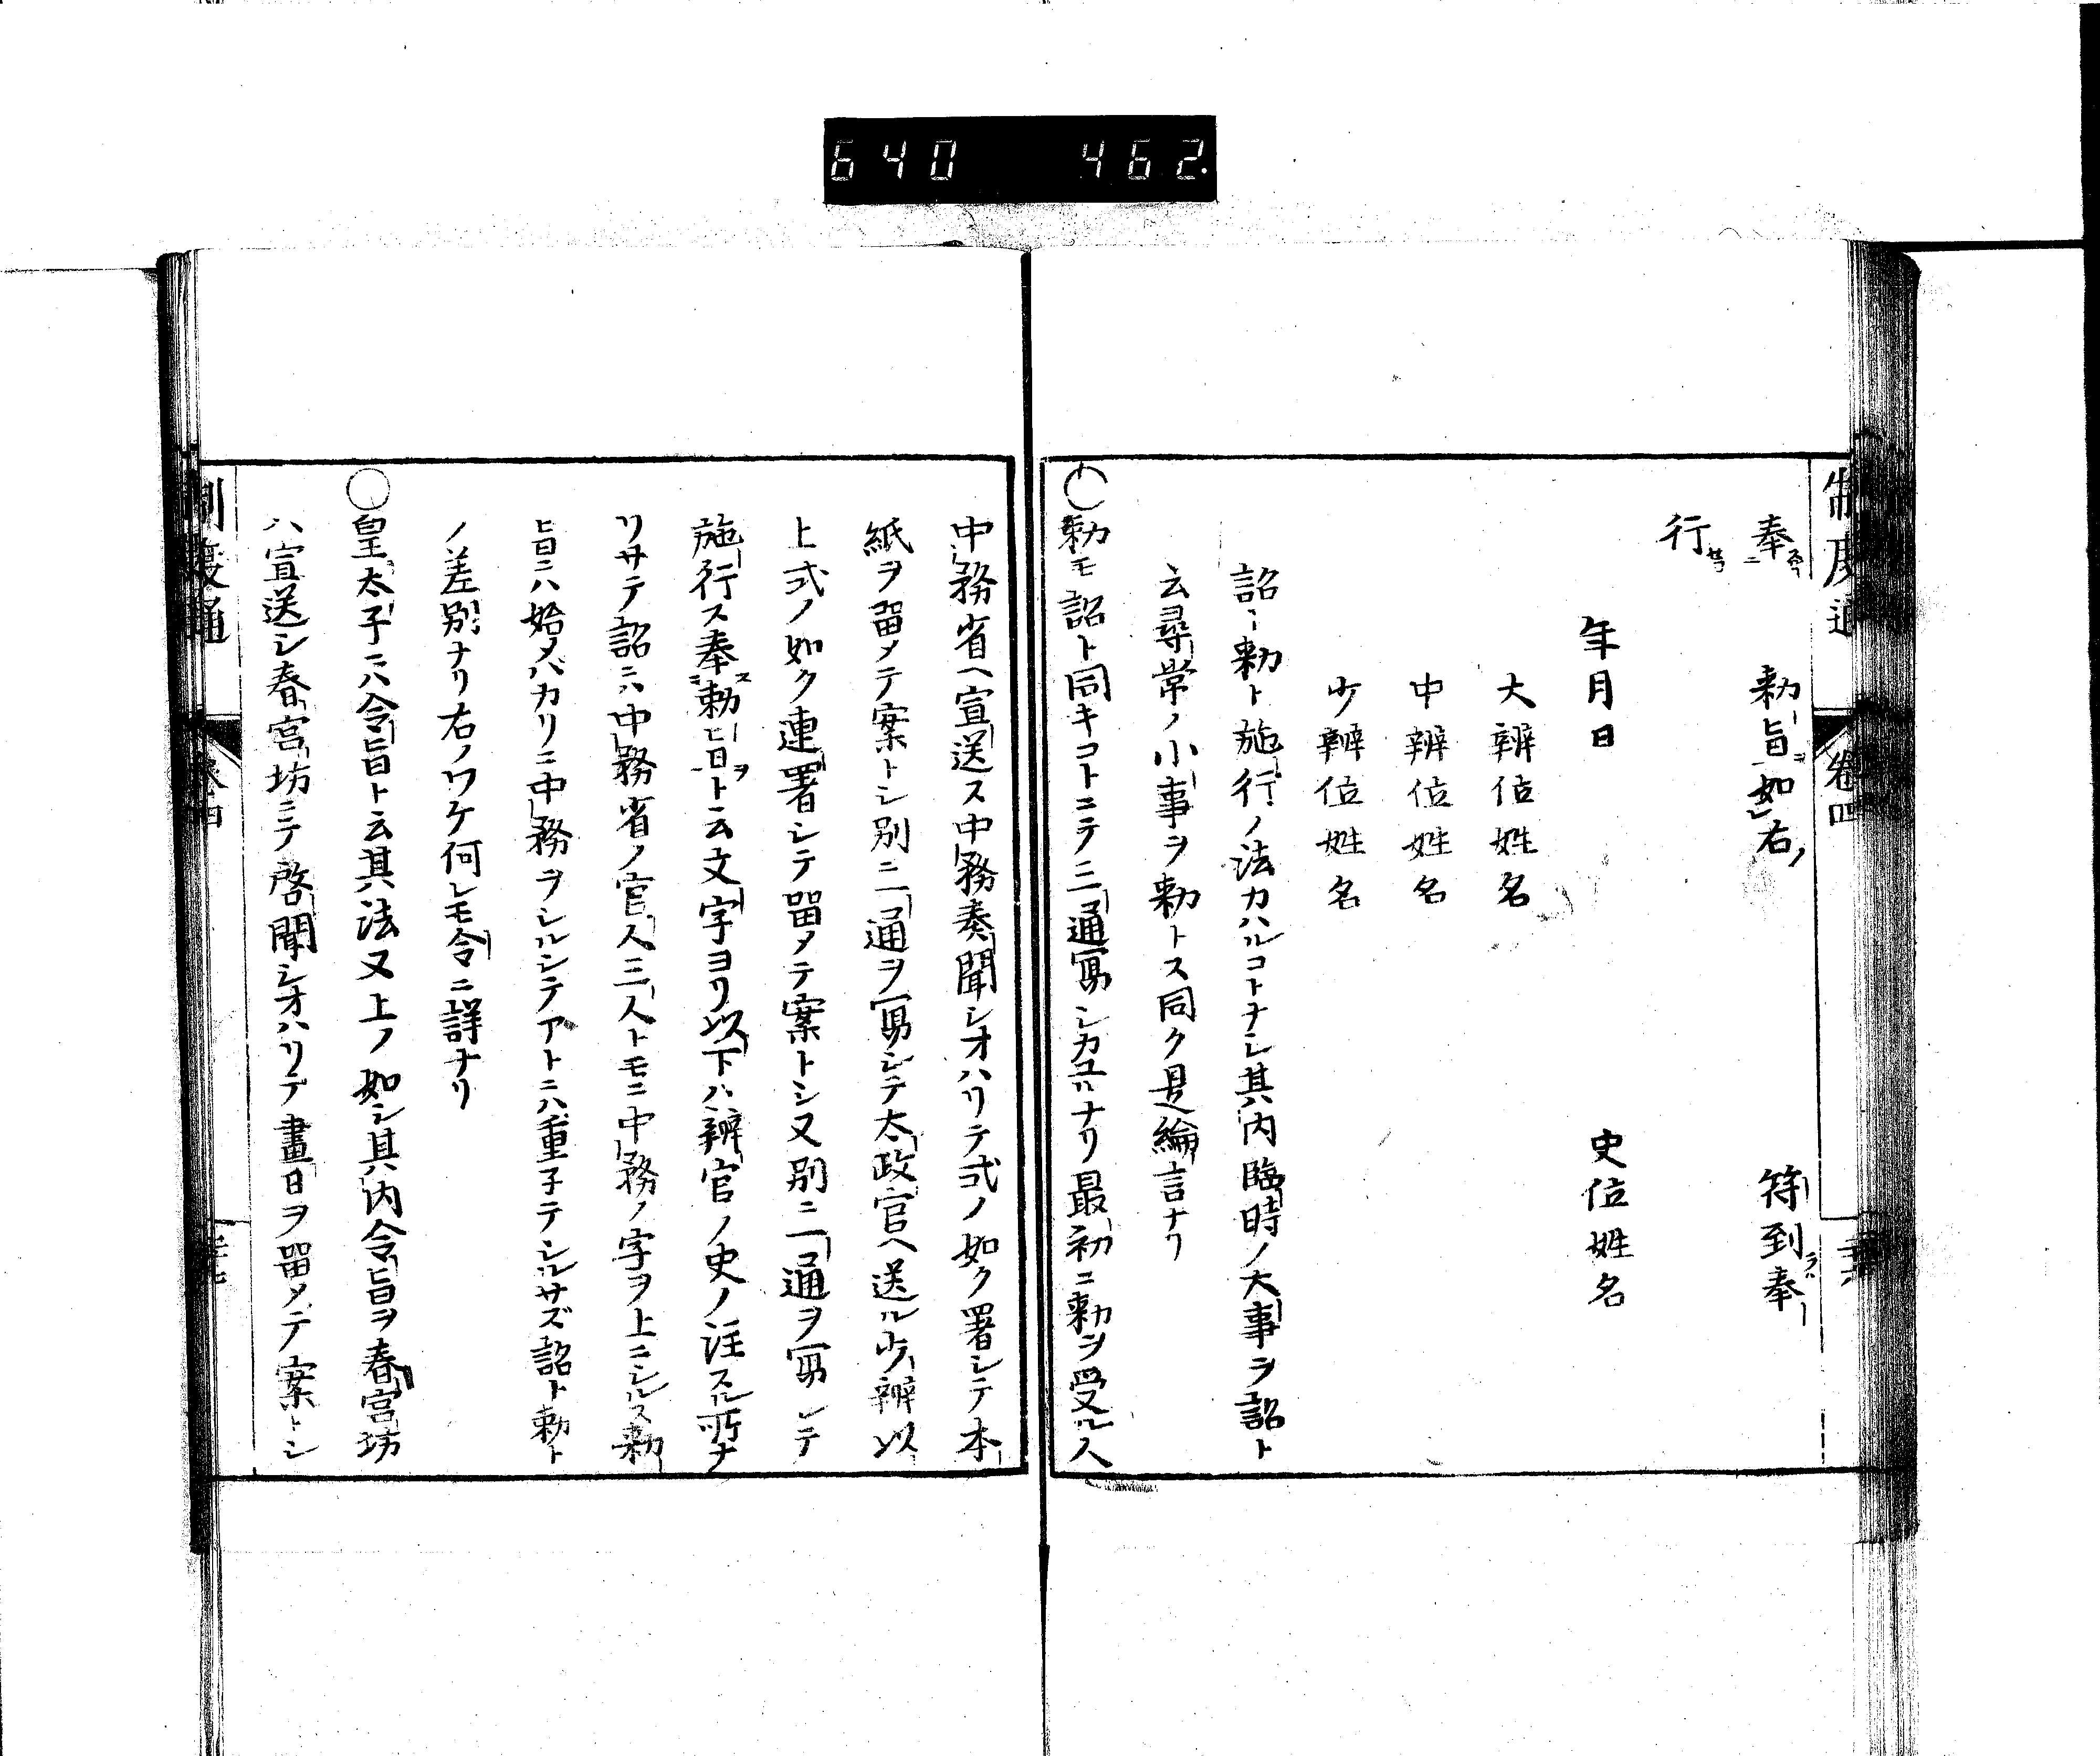 640 462.
制度通 卷四
奉 勅旨如右 符到奉
行
年月日 史位姓名
大辨位姓名
中辨位姓名
少辨位姓名
詔ト勅ト施行ノ法カハルコトナシ其内臨時ノ大事ヲ詔ト
云尋常ノ小事ヲ勅トス同ク是綸言ナリ
〇勅モ詔ト同キコトニテ二通寫シカユルナリ最初ニ勅ヲ受ル人
中務省ヘ宣送ス中務奏聞シオハリテ式ノ如ク署シテ本
紙ヲ留メテ案トシ別ニ一通ヲ寫シテ太政官ヘ送ル少辨以
上式ノ如ク連署シテ留メテ案トシ又別ニ一通ヲ寫シテ
施行ス奉勅旨ヲト云文字ヨリ以下ハ辨官ノ史ノ注スル所ナ
リサテ詔ニハ中務省ノ官人三人トモニ中務ノ字ヲ上ニシルス勅
旨ニハ始メバカリニ中務ヲシルシテアトニハ重子テシルサズ詔ト勅ト
ノ差別ナリ右ノワケ何レモ令ニ詳ナリ
〇皇太子ニハ令旨ト云其法又上ノ如シ其内令旨ヲ春宮坊
ハ宣送シ春宮坊ニテ啓聞シオハリテ畫日ヲ留メテ案トシ
制度通 卷四